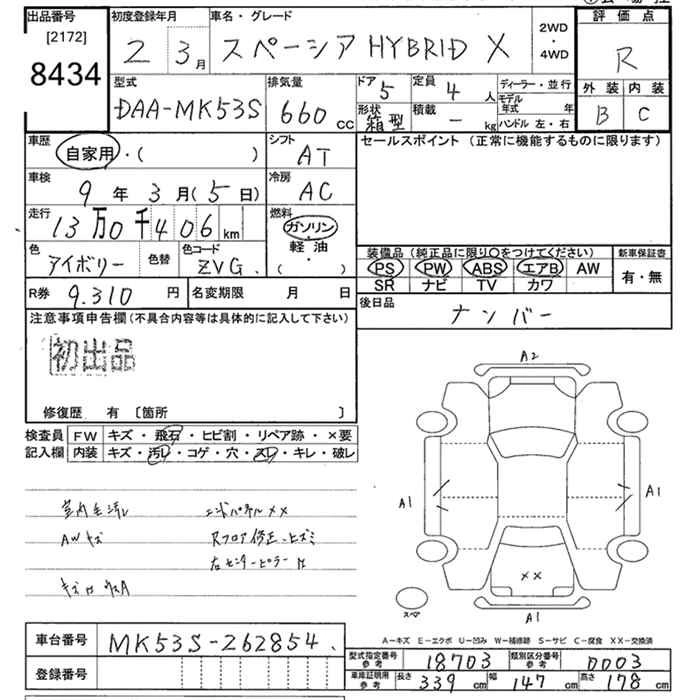 出品番号 初度登録年月 車名・グレード 評価点
[2172]
8434
2 3月 スペーシア HYBRID X 2WD・4WD R
型式 排気量 ドア 5 定員 4人 ディーラー・並行 外装 内装
DAA-MK53S 660cc 形状 箱型 積載 － kg モデル年式 年 B C
ハンドル 左・右
車歴 シフト セールスポイント (正常に機能するものに限ります)
自家用・( ) AT
車検 冷房
9年3月(5日) AC
走行 燃料
13万0千406km ガソリン
軽油
( ・ )
色 色替 色コード 装備品(純正品に限り○をつけてください) 新車保証書
アイボリー ZVG. PS PW ABS エアB AW 有・無
SR ナビ TV カワ
R券 9.310円 名変期限 月 日 後日品
ナンバー
注意事項申告欄(不具合内容等は具体的に記入して下さい)
初出品
修復歴 有 〔箇所 〕
検査員 FW キズ・飛石・ヒビ割・リペア跡・×要
記入欄 内装 キズ・汚レ・コゲ・穴・スレ・キレ・破レ
A2
A1
A1
室内毛汚レ エンドパネルXX
AWキズ Rフロア修正、ヒズミ
右センターピラー
XX
スペ
A1
A－キズ E－エクボ U－凹み W－補修跡 S－サビ C－腐食 XX－交換済
車台番号 MK53S-262854.
登録番号
型式指定番号 参考 18703 類別区分番号 参考 0003
車庫証明用 参考 長さ 339cm 幅 147cm 高さ 178cm